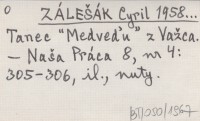 0
ZÁLEŠÁK Cyril 1958...
Tanec "Medveďu" z Važca.
— Naša Práca 8, nr 4:
305-306, il., nuty.
BJ/090/1967